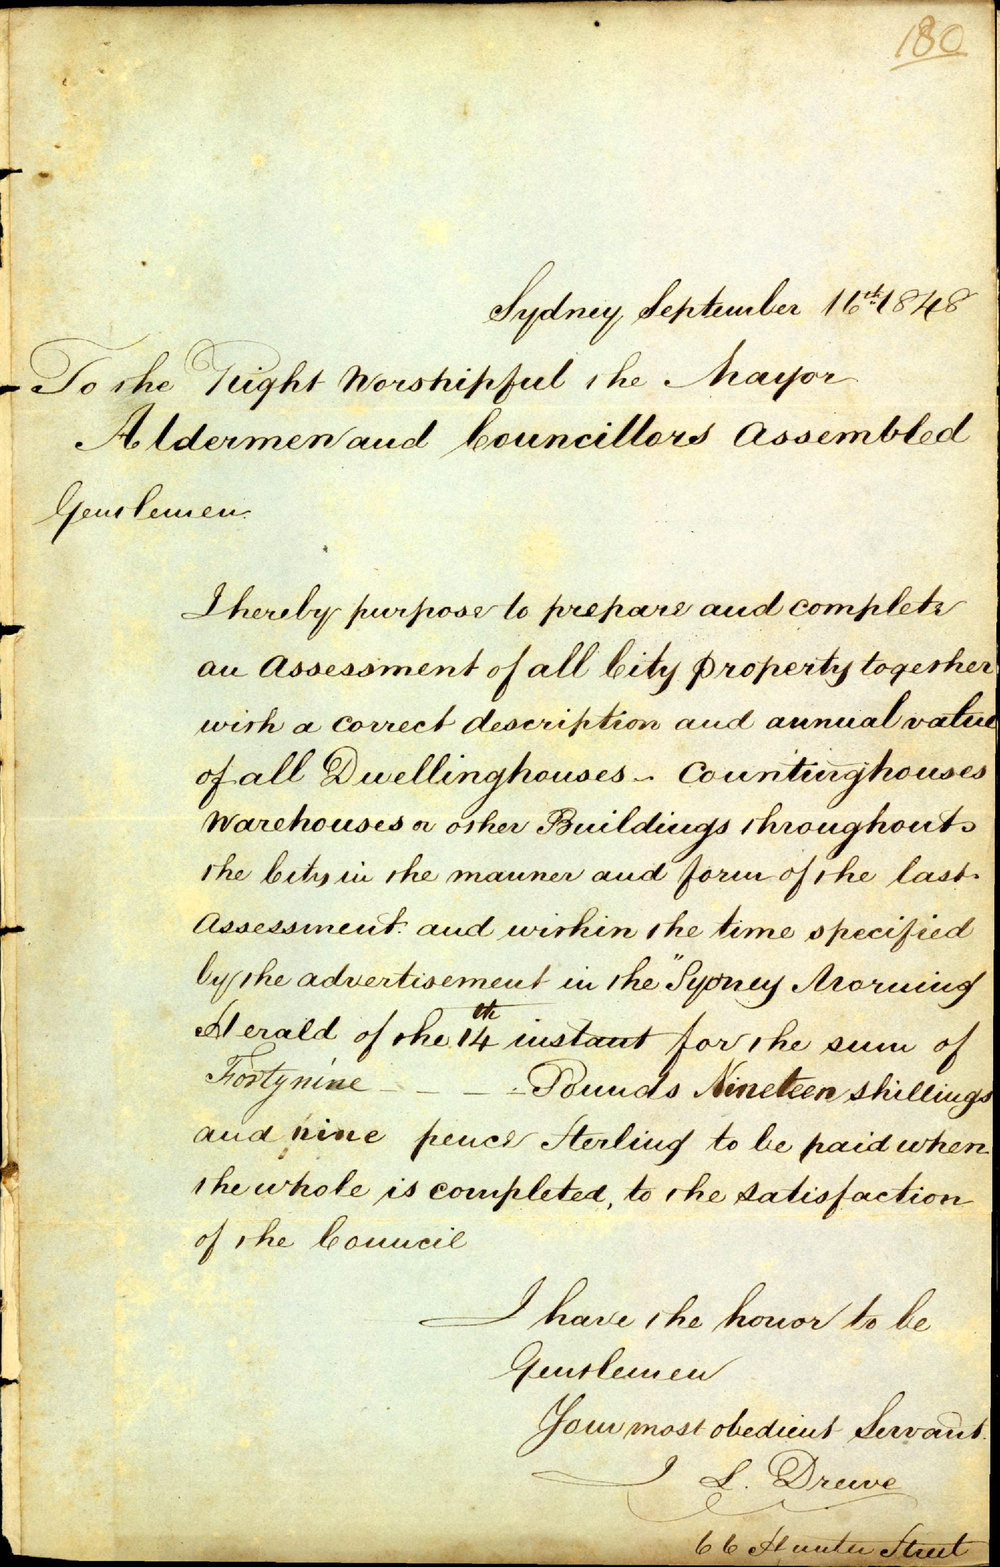 180
Sydney September 16th 1848
To the Right Worshipful the Mayor
Aldermen and Councillors Assembled
Gentlemen
I hereby purpose to prepare and complete
an Assessment of all City Property together
with a correct description and annual value
of all Dwellinghouses - Countinghouses
Warehouses or other Buildings throughout
the City in the manner and form of the last
Assessment and within the time specified
by the advertisement in the "Sydney Morning
Herald of the 14th instant for the sum of
Fortynine - - - Pounds Nineteen shillings
and nine pence Sterling to be paid when
the whole is completed, to the satisfaction
of the Council
I have the honor to be
Gentlemen
Your most obedient Servant
J L. Drewe
66 Hunter Street